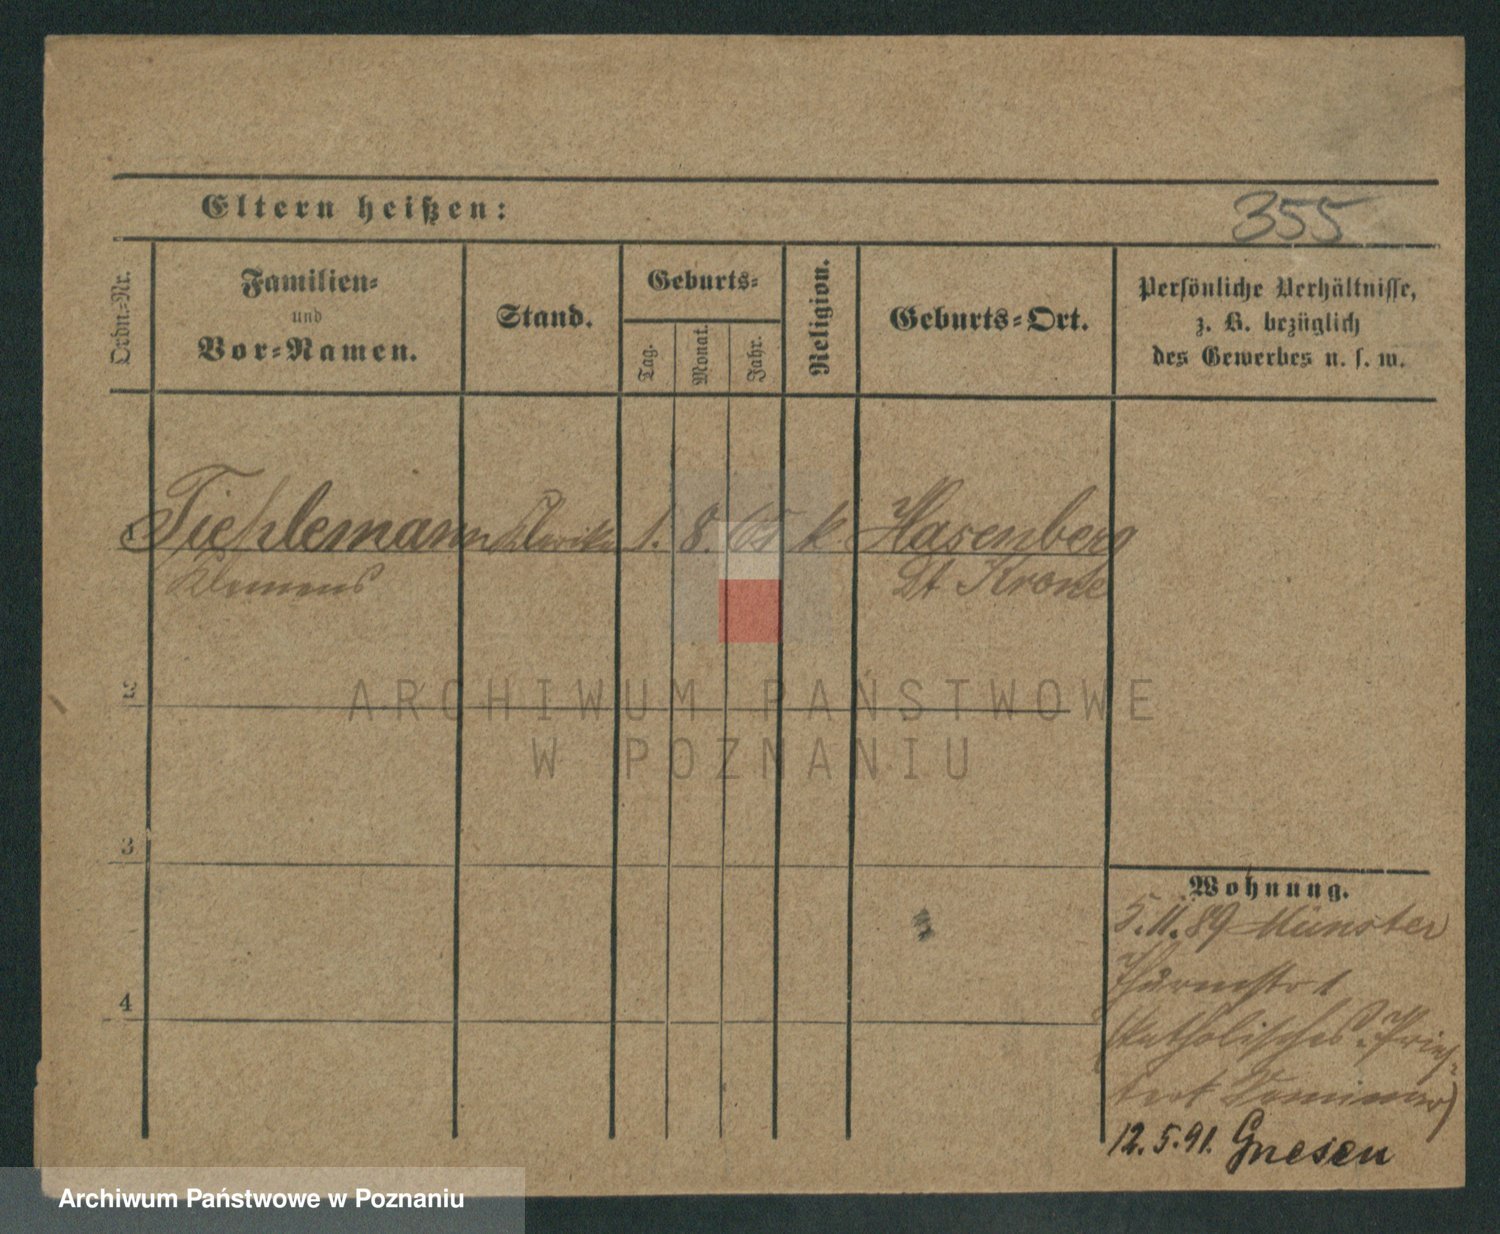 Eltern heißen:
355
Ordn.-Nr.
Familien-
und
Vor-Namen.
Stand.
Geburts-
Tag.
Monat.
Jahr.
Religion.
Geburts-Ort.
Persönliche Verhältnisse,
z. B. bezüglich
des Gewerbes u. s. w.
1 Tiehlemann Kleriker 1. 8. 65 k Hasenberg
Klemens Dt Krone
2
ARCHIWUM PAŃSTWOWE
W POZNANIU
3
Wohnung.
5.11.89 Münster
Thurmstr 1
4
(Katholisches Pries-
12.5.91. Gnesen
Archiwum Państwowe w Poznaniu